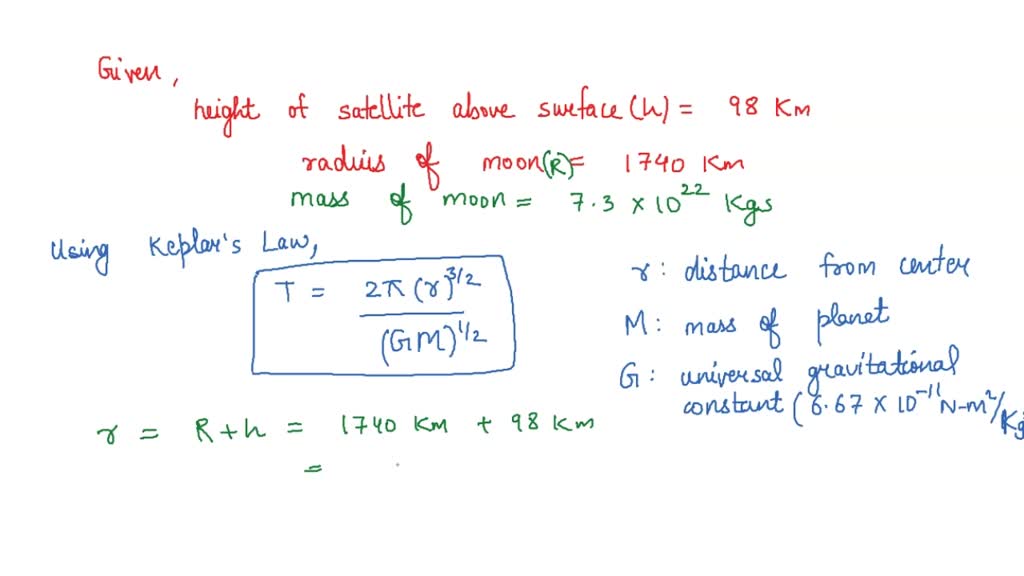 Given,
height of satellite above surface (h) = 98 Km
radius of moon (R) = 1740 Km
mass of moon = 7.3 × 10²² Kgs
Using Keplar's Law,
T = 2π (r)^3/2 / (GM)^1/2
r : distance from center
M : mass of planet
G : universal gravitational
constant (6.67 × 10⁻¹¹ N-m²/Kg
r = R + h = 1740 Km + 98 Km
=